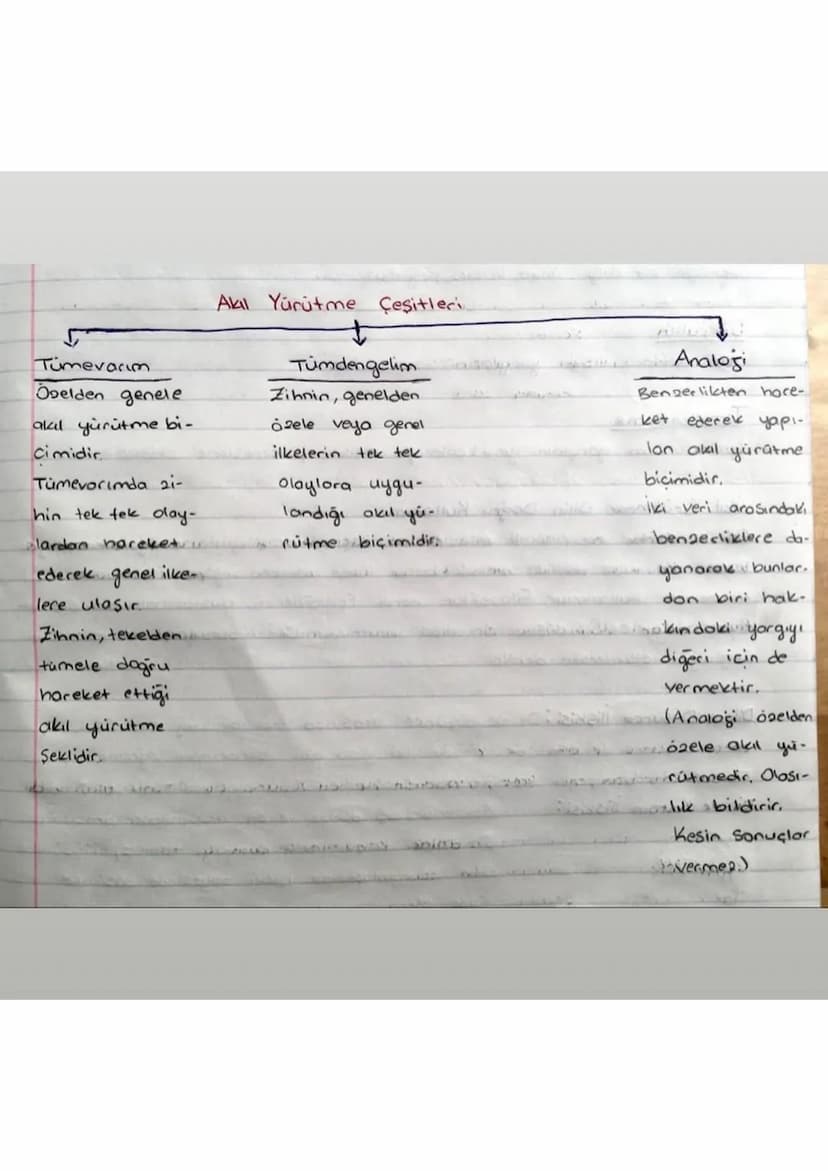 Akıl Yürütme Çeşitleri
Tümevarım
Özelden genele
akıl yürütme bi-
çimidir.
Tümevarımda zi-
hin tek tek olay-
lardan hareket
ederek genel ilke-
lere ulaşır.
Zihnin, tekelden
tümele doğru
hareket ettiği
akıl yürütme
Şeklidir.
Tümdengelim
Zihnin, genelden
özele veya genel
ilkelerin tek tek
olaylara uygu-
landığı akıl yü-
rütme biçimidir.
Analoji
Benzerlikten hare-
ket ederek yapı-
lan akıl yürütme
biçimidir.
İki veri arasındaki
benzerliklere da-
yanarak bunlar-
dan biri hak-
kındaki yargıyı
diğeri için de
vermektir.
(Analoji özelden
özele akıl yü-
rütmedir. Olası-
lık bildirir.
Kesin Sonuçlar
vermez.)